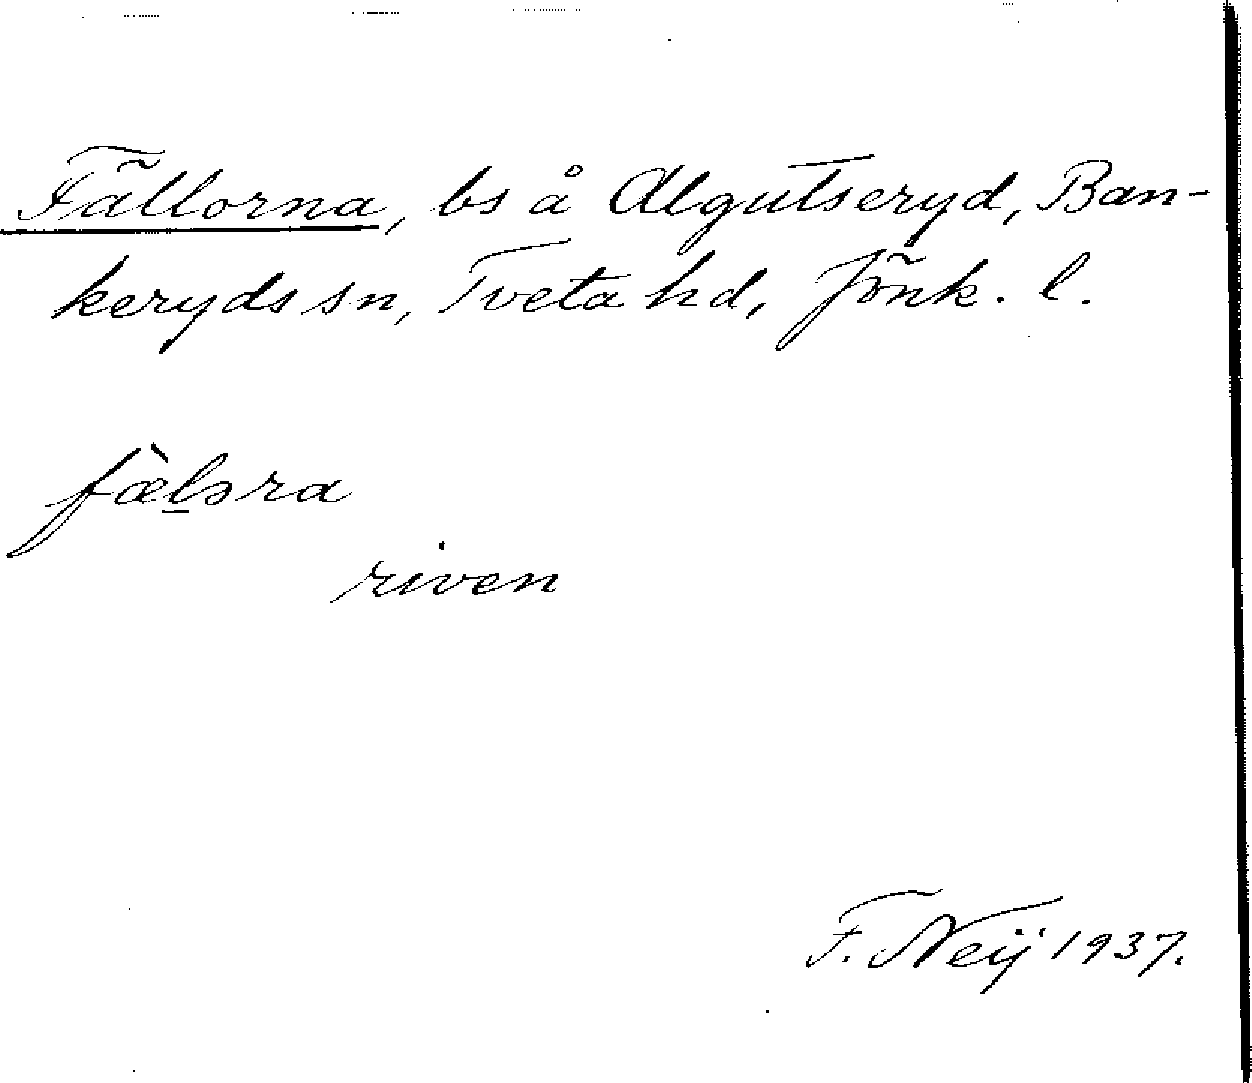 Fällorna, bs å Algutseryd, Ban-
keryds sn, Tveta hd, Jönk. l.
fæ̀l̠ɔra
riven
F. Neij 1937.